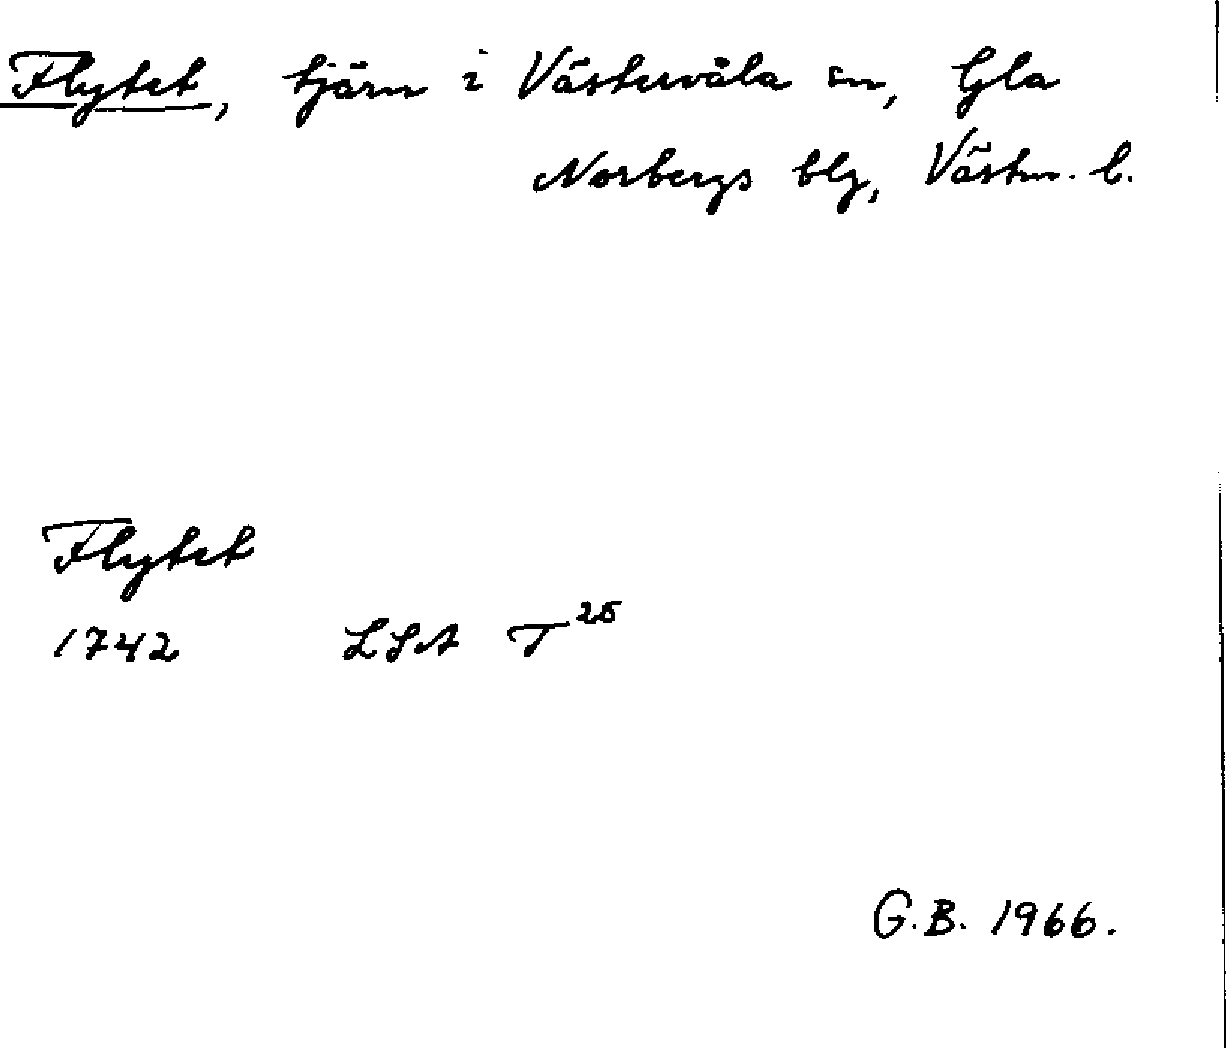 Flytet, tjärn i Västervåla sn, Gla
Norbergs blg, Västm. l.
Flytet
1742 LSA T 25
G.B. 1966.